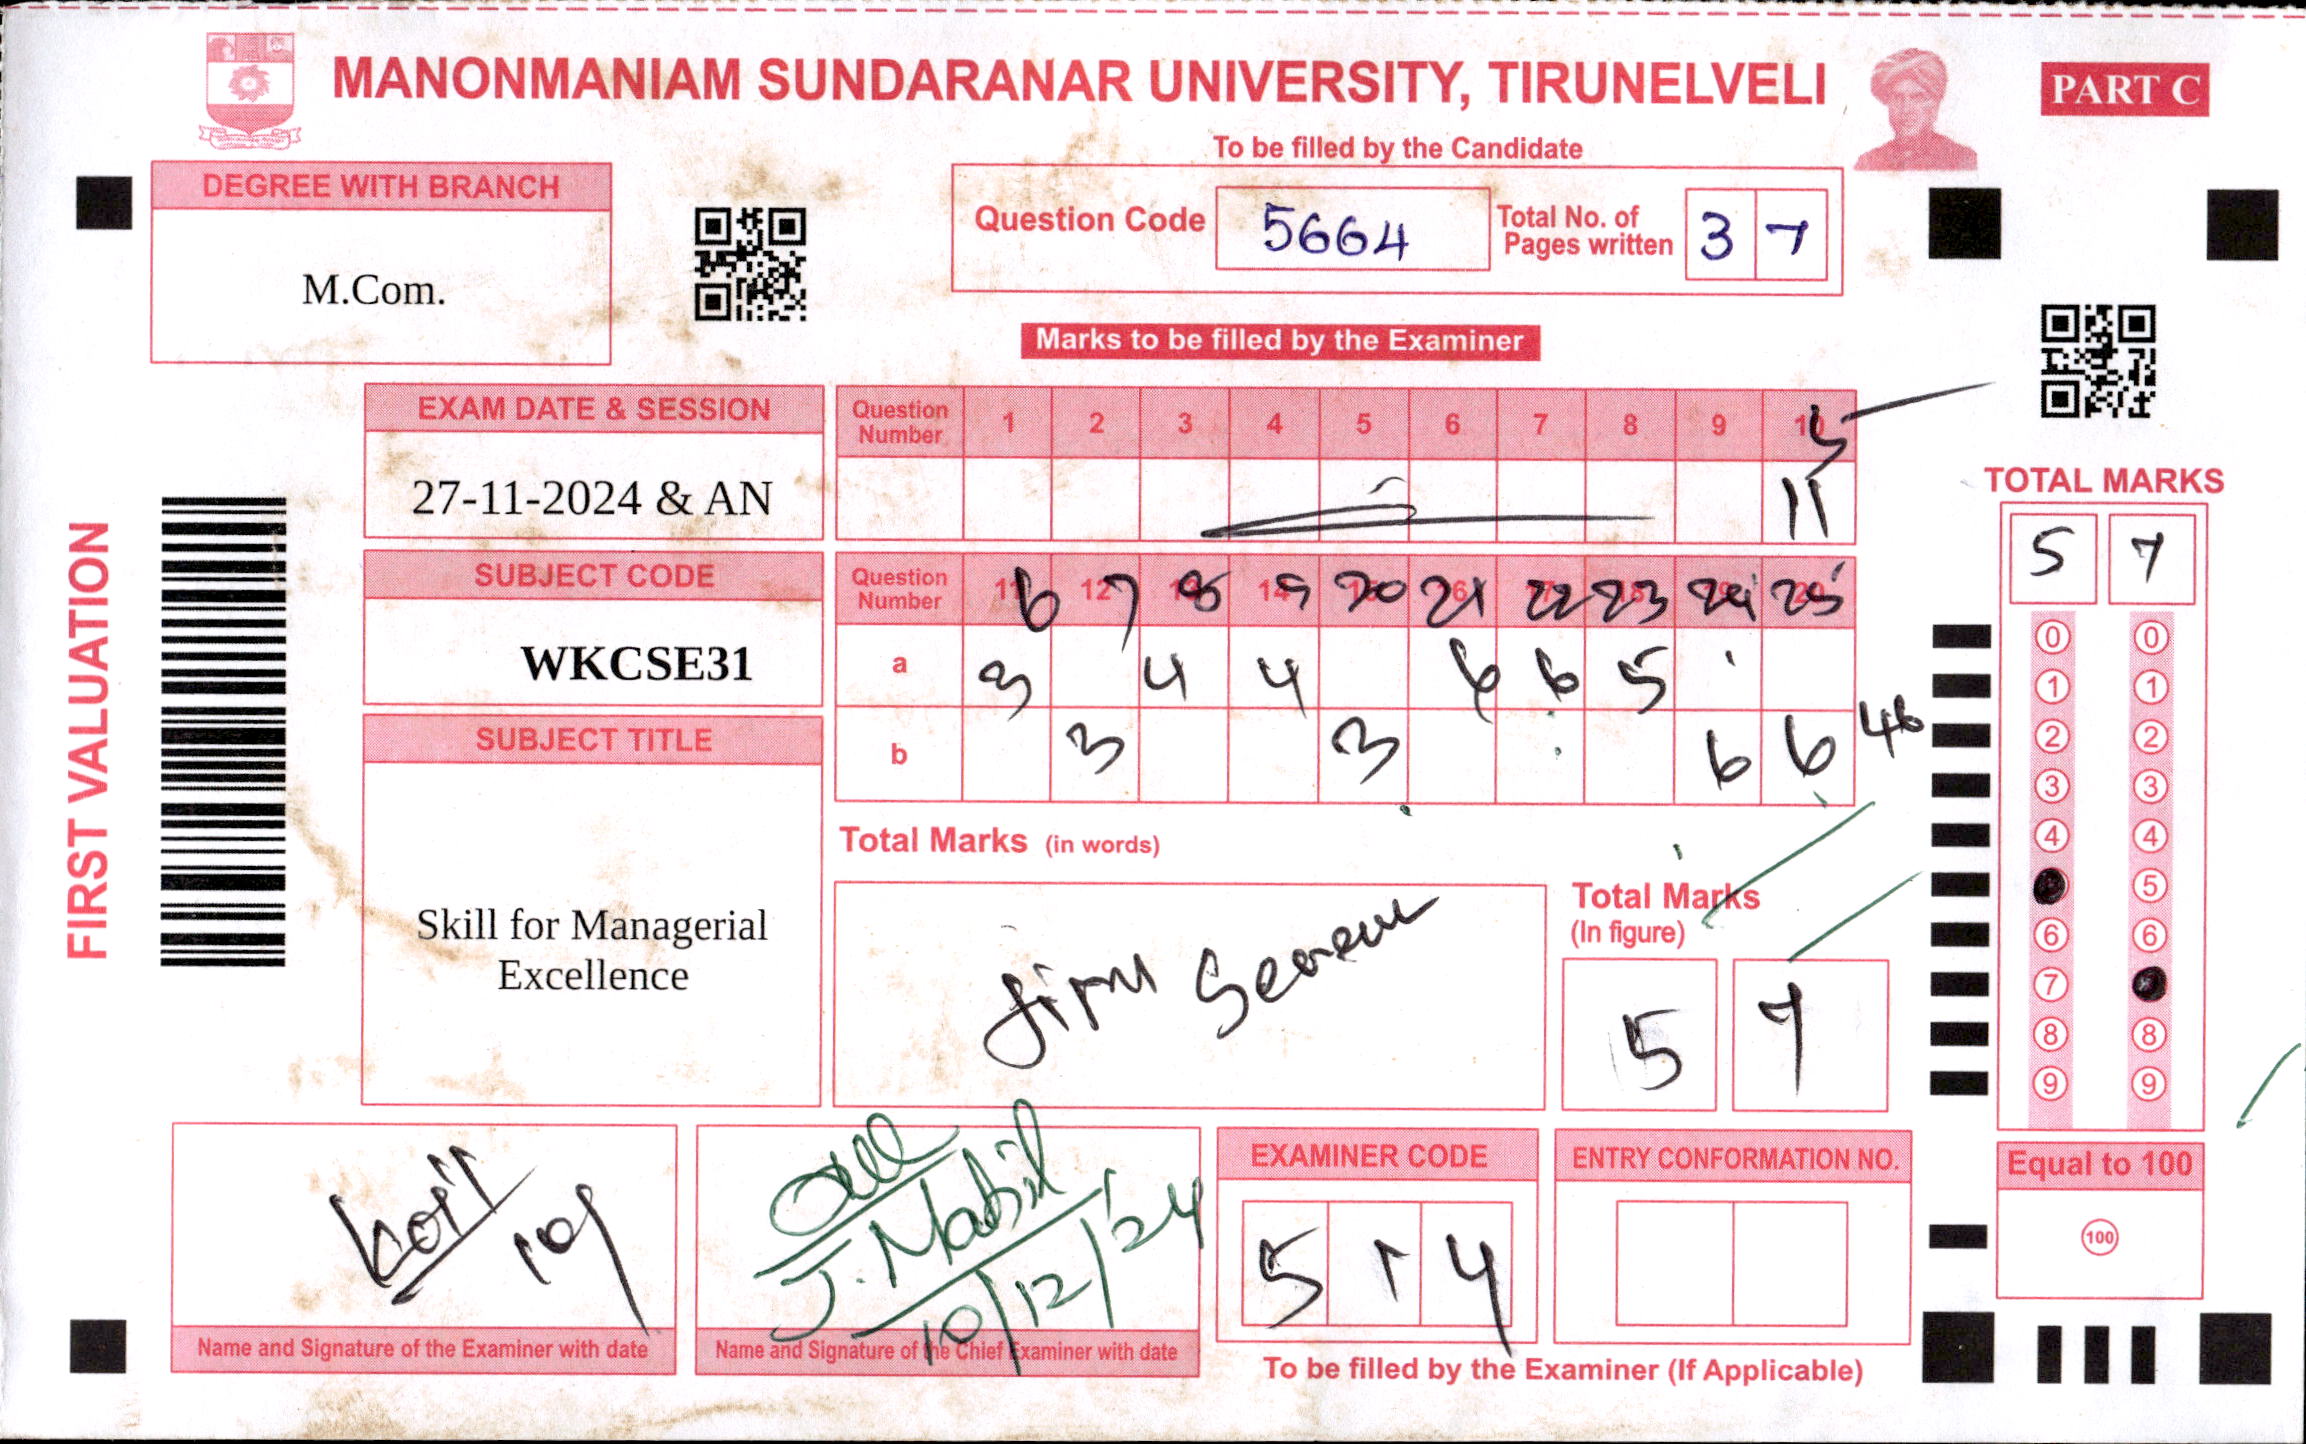 MANONMANIAM SUNDARANAR UNIVERSITY, TIRUNELVELI
PART C
To be filled by the Candidate
DEGREE WITH BRANCH
M.Com.
Question Code 5664
Total No. of Pages written 3 7
Marks to be filled by the Examiner
EXAM DATE & SESSION
27-11-2024 & AN
Question Number 1 2 3 4 5 6 7 8 9 10
5
11
SUBJECT CODE
WKCSE31
Question Number 6 7 8 9 20 21 22 23 24 25
a 3 4 4 6 6 5
b 3 3 6 6 46
SUBJECT TITLE
Skill for Managerial
Excellence
FIRST VALUATION
Total Marks (in words)
Total Marks
(In figure)
5 7
TOTAL MARKS
5 7
0 0
1 1
2 2
3 3
4 4
5
6 6
7
8 8
9 9
Equal to 100
100
J. Mabil
10/12/24
Name and Signature of the Examiner with date
Name and Signature of the Chief Examiner with date
EXAMINER CODE
5 1 4
ENTRY CONFORMATION NO.
To be filled by the Examiner (If Applicable)